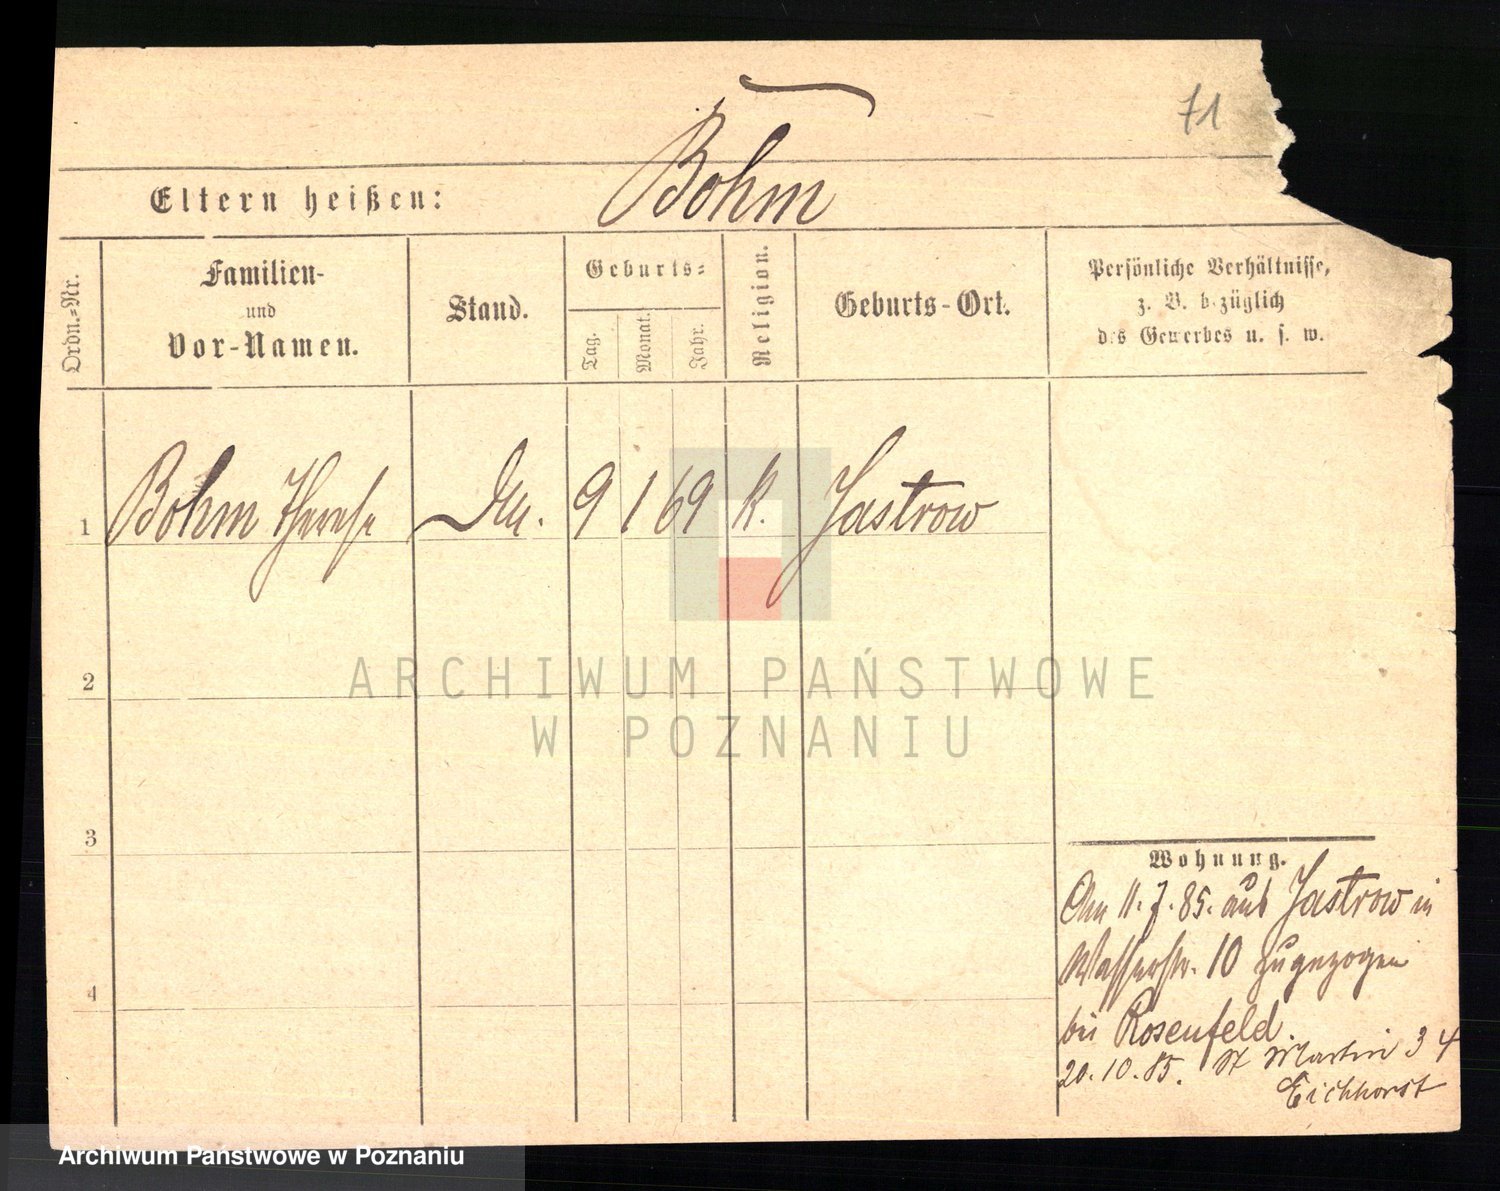 71
Böhm
Eltern heißen:
Ordn.-Nr.
Familien-
und
Vor-Namen.
Stand.
Geburts-
Tag.
Monat.
Jahr.
Religion.
Geburts-Ort.
Persönliche Verhältnisse,
z. B. bezüglich
des Gewerbes u. s. w.
1 Böhm Therese 9 1 69 k. Jastrow
2
3
4
Wohnung.
Am 11.7.85. aus Jastrow in
Wasserstr. 10 zugezogen
bei Rosenfeld.
20.10.85. St Martin 34
Eichhorst
ARCHIWUM PAŃSTWOWE
W POZNANIU
Archiwum Państwowe w Poznaniu